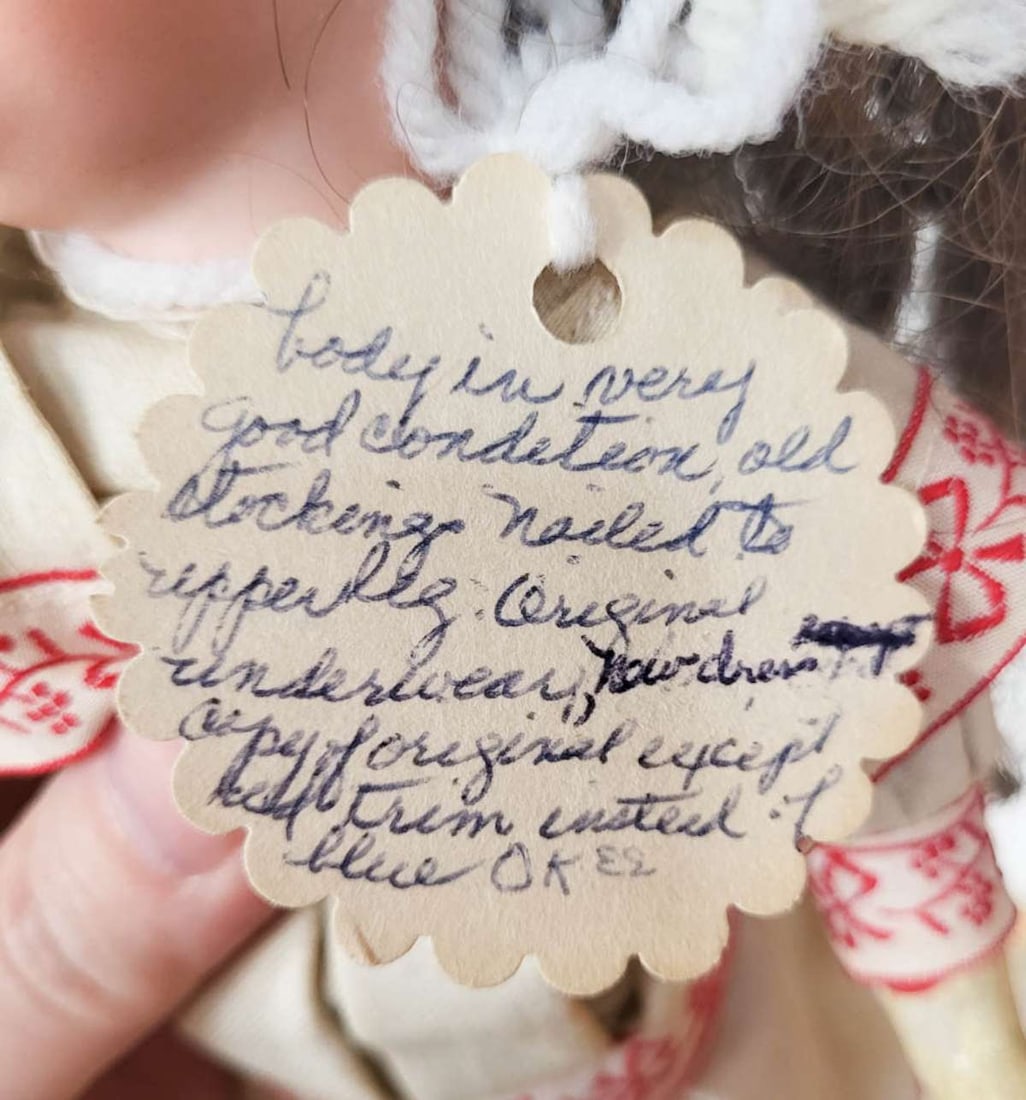 body in very
good condition, old
stockings nailed to
upper leg. Original
underwear, new dress
copy of original except
red trim instead of
blue OK